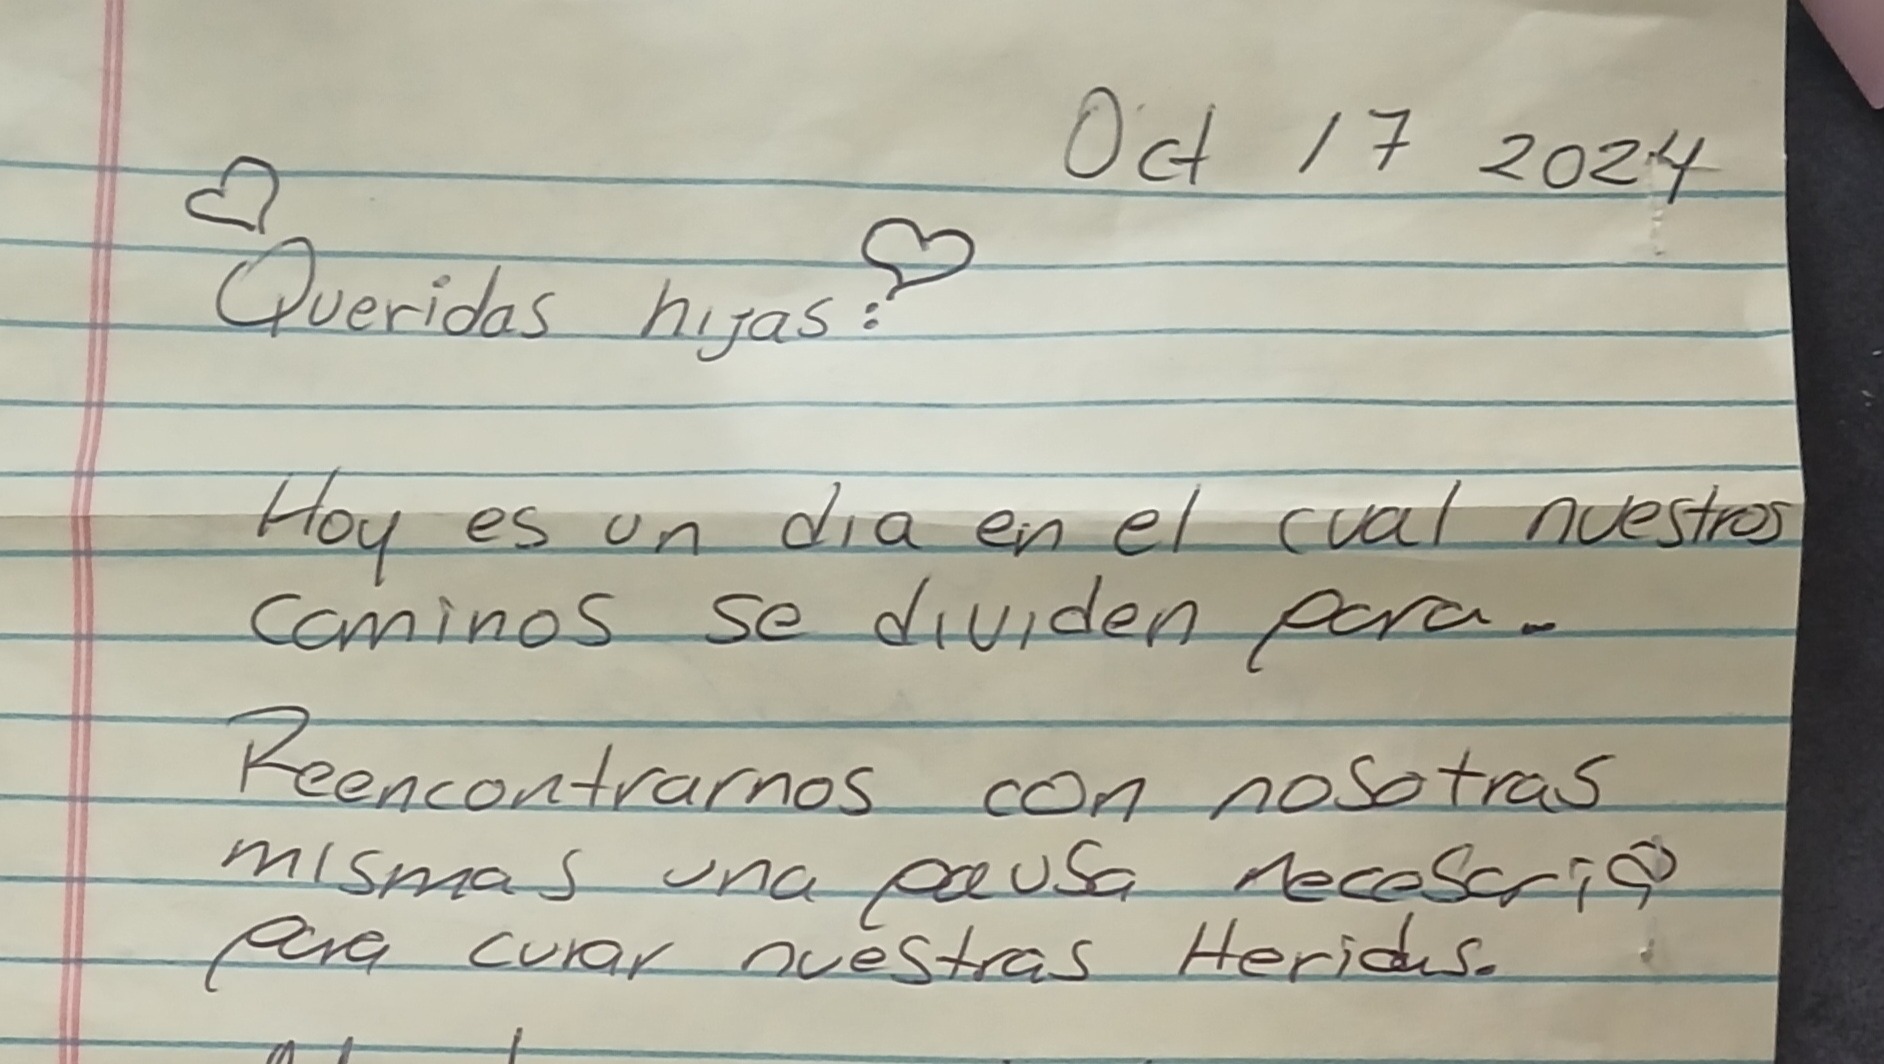 Oct 17 2024
Queridas hijas:
Hoy es un dia en el cual nuestros
caminos se dividen para.
Reencontrarnos con nosotras
mismas una pausa necesaria
para curar nuestras Heridas.